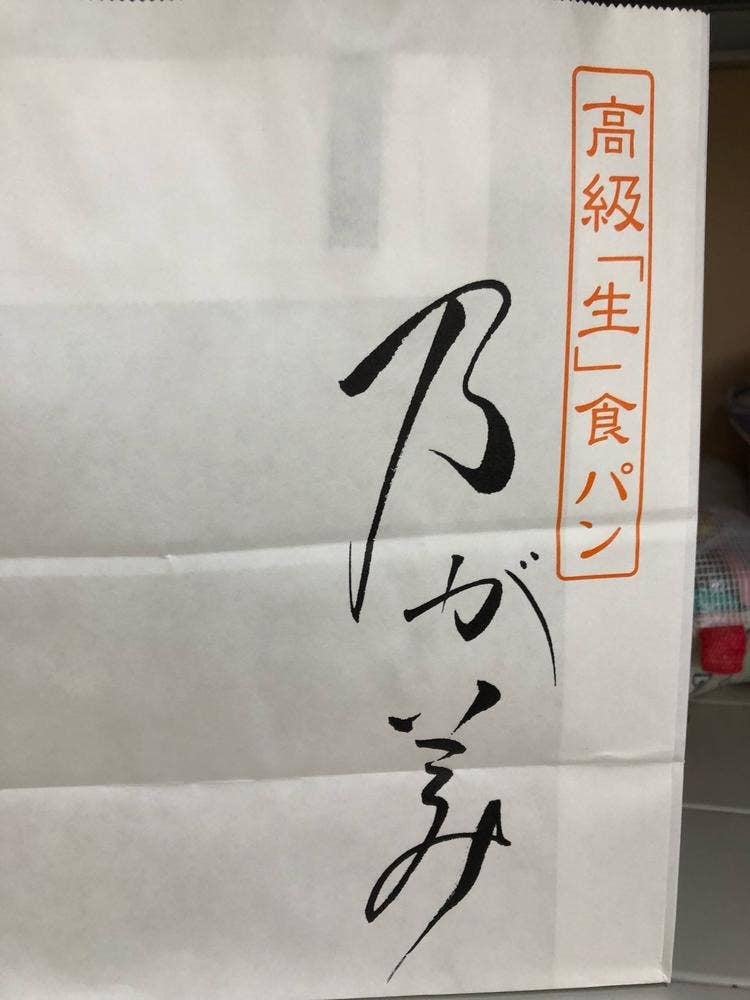 高級「生」食パン
乃が美